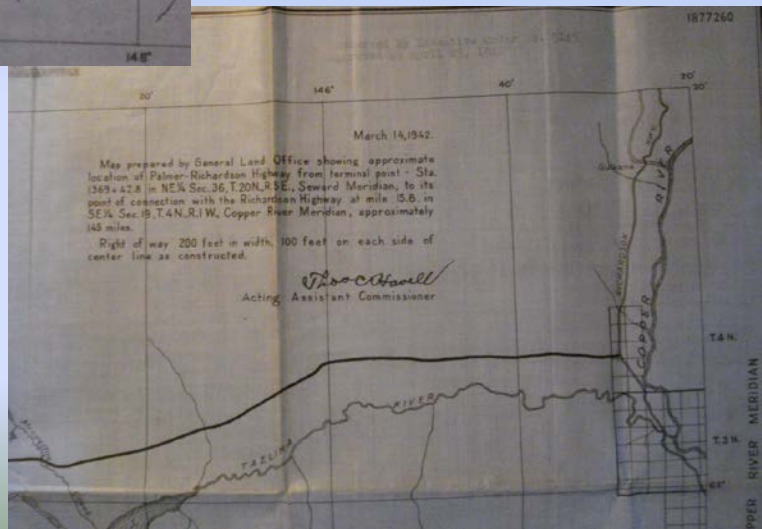 148°
1877260
20'
146°
40'
20'
30'
March 14, 1942.
Map prepared by General Land Office showing approximate
location of Palmer-Richardson Highway from terminal point - Sta.
1369+42.8 in NE¼ Sec. 36, T. 20N., R. 5E., Seward Meridian, to its
point of connection with the Richardson Highway at mile 15.8. in
SE¼ Sec. 19, T. 4 N., R. 1 W., Copper River Meridian, approximately
145 miles.
Right of way 200 feet in width, 100 feet on each side of
center line as constructed.
Thos C Havell
Acting Assistant Commissioner
Gulkana
RIVER
RICHARDSON
COPPER
T. 4 N.
TAZLINA
RIVER
T. 3 N.
COPPER RIVER MERIDIAN